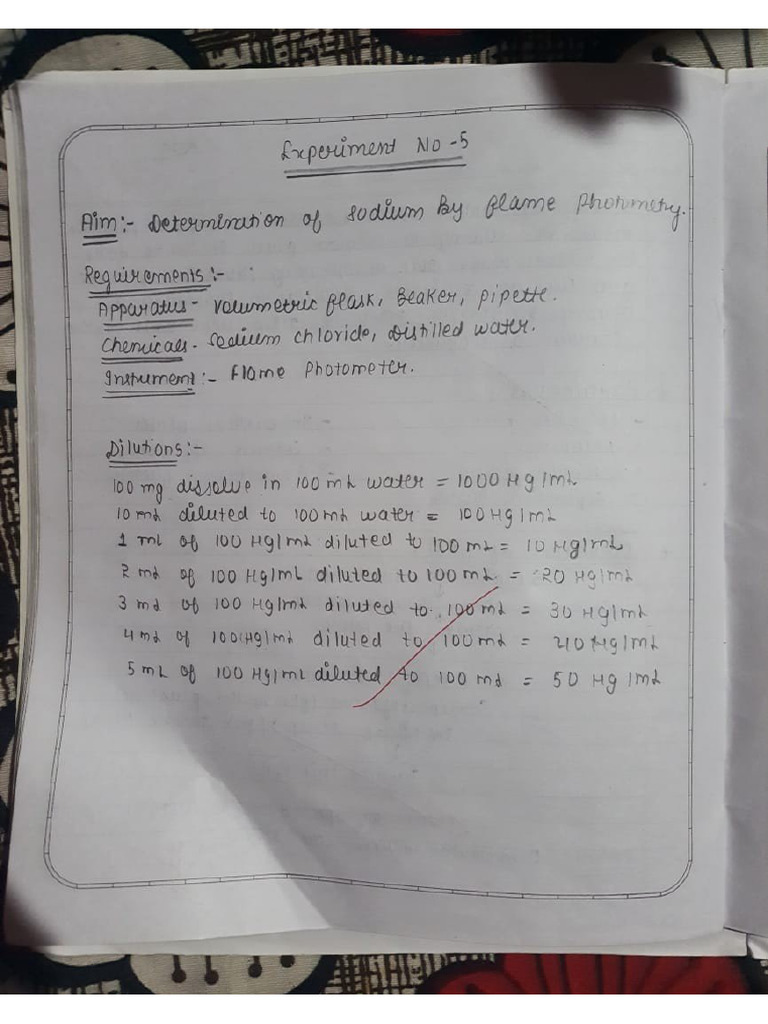 Experiment No - 5
Aim:- Determination of sodium By flame photometry.
Requirements:-
Apparatus- volumetric flask, Beaker, pipette.
Chemicals- Sodium chloride, Distilled water.
Instrument:- Flame Photometer.
Dilutions:-
100 mg dissolve in 100 mL water = 1000 μg/mL
10 mL diluted to 100 mL water = 100 μg/mL
1 mL of 100 μg/mL diluted to 100 mL = 10 μg/mL
2 mL of 100 μg/mL diluted to 100 mL = 20 μg/mL
3 mL of 100 μg/mL diluted to 100 mL = 30 μg/mL
4 mL of 100 μg/mL diluted to 100 mL = 40 μg/mL
5 mL of 100 μg/mL diluted to 100 mL = 50 μg/mL